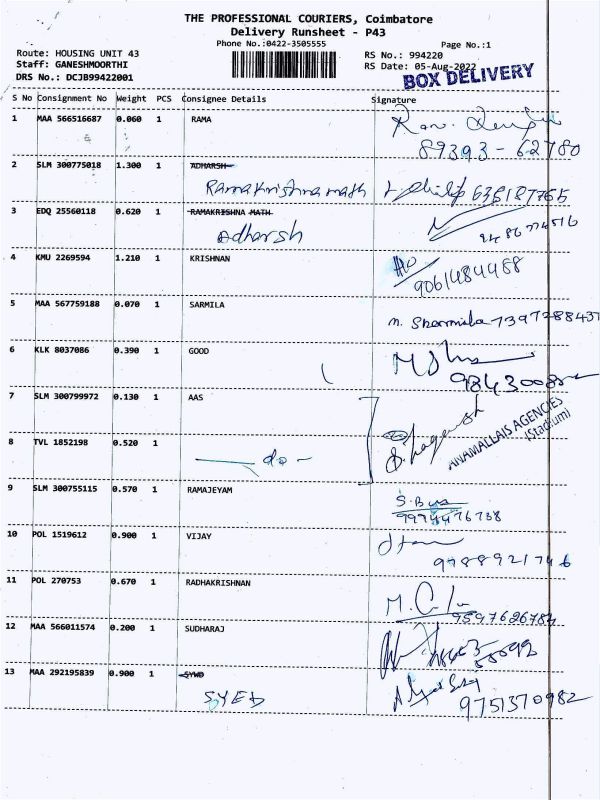 THE PROFESSIONAL COURIERS, Coimbatore
Delivery Runsheet - P43
Phone No.:0422-3505555
Page No.:1
Route: HOUSING UNIT 43
RS No.: 994220
Staff: GANESHMOORTHI
RS Date: 05-Aug-2022
DRS No.: DCJB99422001
BOX DELIVERY
S No Consignment No Weight PCS Consignee Details Signature
1 MAA 566516687 0.060 1 RAMA
89393-62780
2 SLM 300775018 1.300 1 ADHARSH
Ramakrishna math
3 EDQ 25560118 0.620 1 RAMAKRISHNA MATH
Adharsh
4 KMU 2269594 1.210 1 KRISHNAN
9061484488
5 MAA 567759188 0.070 1 SARMILA
n. Sharmila 7397288437
6 KLK 8037086 0.390 1 GOOD
7 SLM 300799972 0.130 1 AAS
ANAMALLAIS AGENCIES
(Stadium)
8 TVL 1852198 0.520 1
— do —
9 SLM 300755115 0.570 1 RAMAJEYAM
10 POL 1519612 0.900 1 VIJAY
9788921746
11 POL 270753 0.670 1 RADHAKRISHNAN
9597626784
12 MAA 566011574 0.200 1 SUDHARAJ
13 MAA 292195839 0.900 1 SYWD
SYED
9751370982